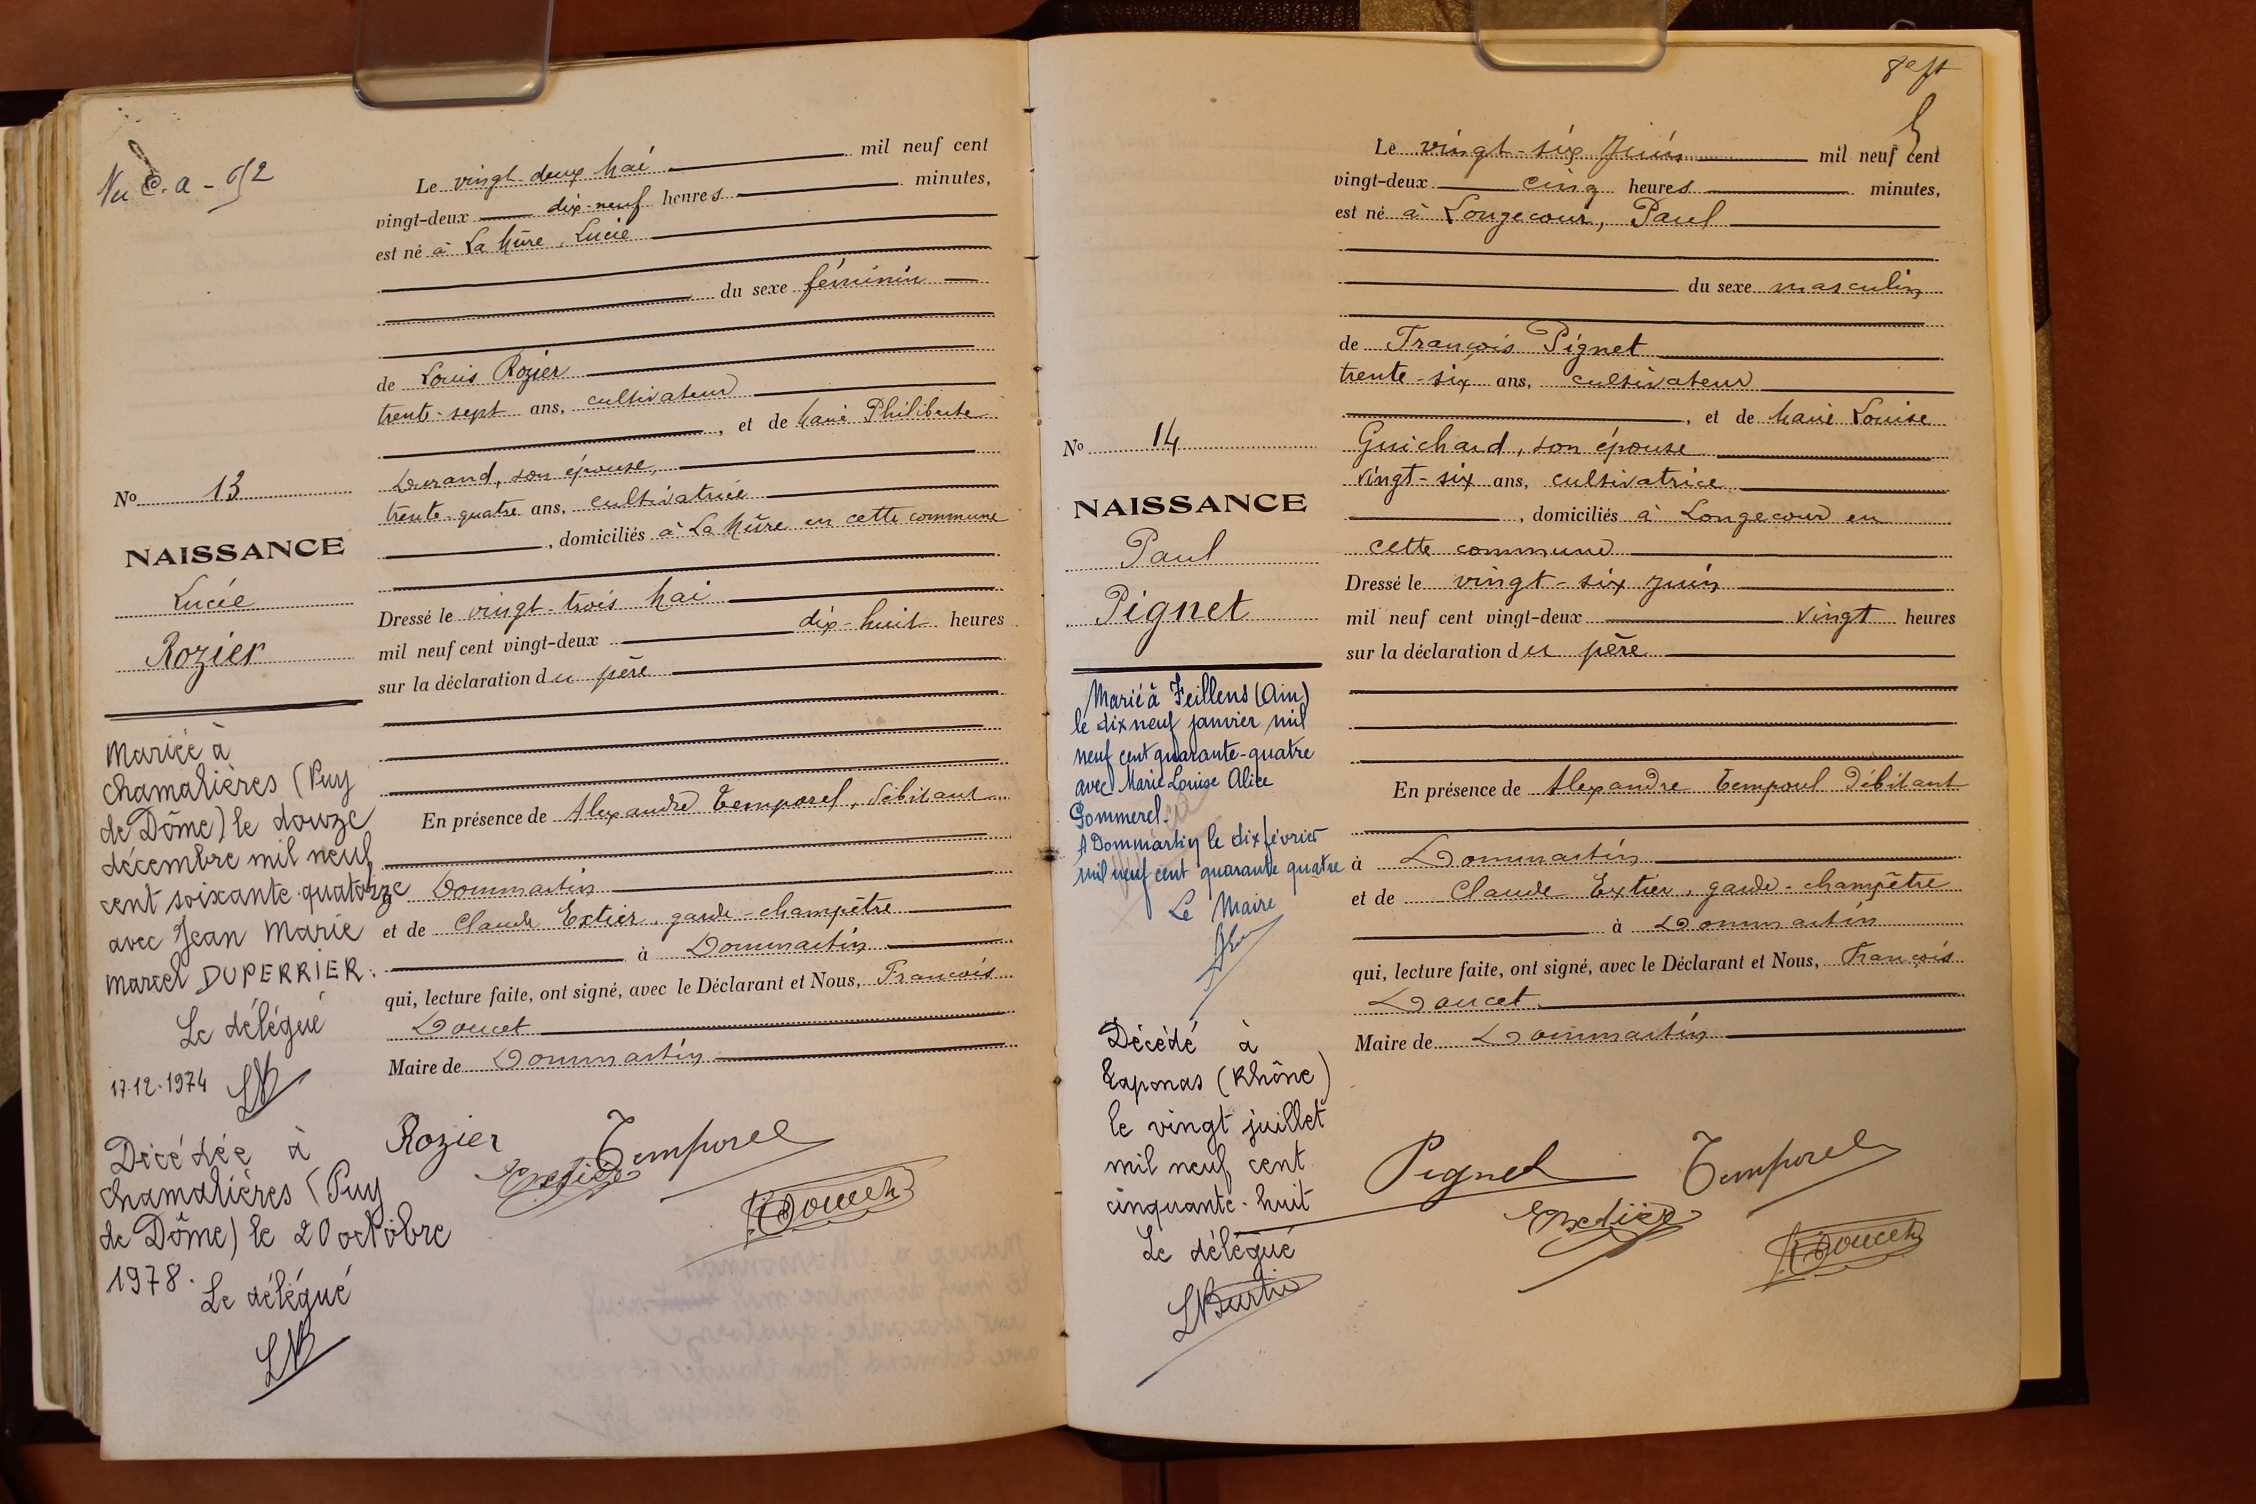 Le vingt-deux Mai mil neuf cent
vingt-deux dix-neuf heures minutes,
est né à La Mûre, Lucie
du sexe féminin
de Louis Rozier
trente-sept ans, cultivateur
, et de Marie Philiberte
Durand, son épouse,
trente-quatre ans, cultivatrice
, domiciliés à La Mûre en cette commune
Dressé le vingt-trois Mai
mil neuf cent vingt-deux dix-huit heures
sur la déclaration du père
En présence de Alexandre Temporel, débitant
à Dommartin
et de Claude Extier, garde-champêtre
à Dommartin
qui, lecture faite, ont signé, avec le Déclarant et Nous, François
Doucet
Maire de Dommartin
Rozier Temporel
Extier
Doucet
No 13
NAISSANCE
Lucie
Rozier
Mariée à
Chamalières (Puy
de Dôme) le douze
décembre mil neuf
cent soixante-quatorze
avec Jean Marie
Marcel DUPERRIER.
Le délégué
17.12.1974
Décédée à
Chamalières (Puy
de Dôme) le 20 octobre
1978.
Le délégué
Le vingt-six Juin mil neuf cent
vingt-deux cinq heures minutes,
est né à Longecour, Paul
du sexe masculin
de François Pignet
trente-six ans, cultivateur
, et de Marie Louise
Guichard, son épouse
vingt-six ans, cultivatrice
, domiciliés à Longecour en
cette commune
Dressé le vingt-six juin
mil neuf cent vingt-deux vingt heures
sur la déclaration du père
En présence de Alexandre Temporel débitant
à Dommartin
et de Claude Extier, garde-champêtre
à Dommartin
qui, lecture faite, ont signé, avec le Déclarant et Nous, François
Doucet
Maire de Dommartin
Pignet Temporel
Extier
Doucet
No 14
NAISSANCE
Paul
Pignet
Marié à Feillens (Ain)
le dix neuf janvier mil
neuf cent quarante-quatre
avec Marie Louise Alice
Pommerel.
A Dommartin le dix février
mil neuf cent quarante quatre
Le Maire
Décédé à
Taponas (Rhône)
le vingt juillet
mil neuf cent
cinquante-huit
Le délégué